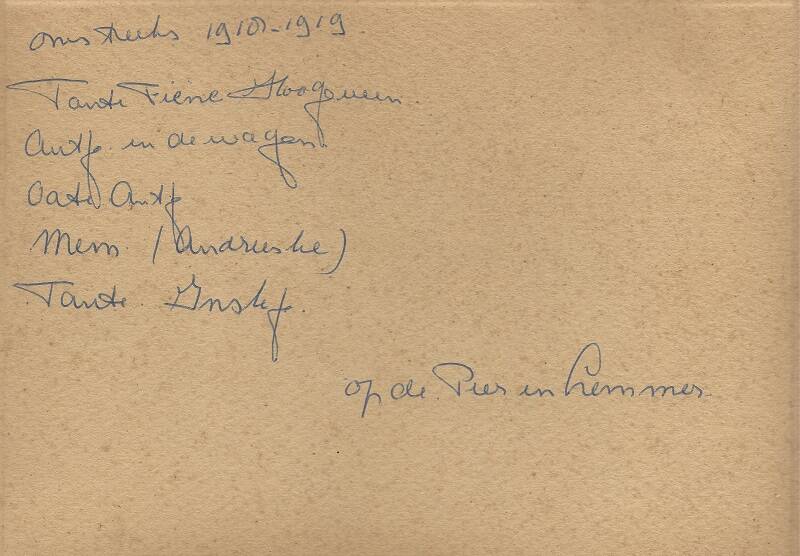 omstreeks 1918-1919.
Tante Fiene Hoogeveen.
Antje in de wagen.
Antje
Mem (Andrieske)
Tante
op de Pier in Lemmer